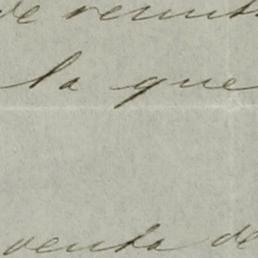 de remit
la que
venta de